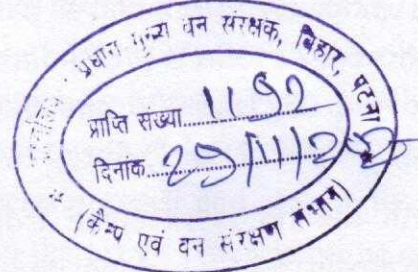 कार्यालय - प्रधान मुख्य वन संरक्षक, बिहार, पटना
प्राप्ति संख्या 1192
दिनांक 29/11/2
(कैम्प एवं वन संरक्षण संभाग)